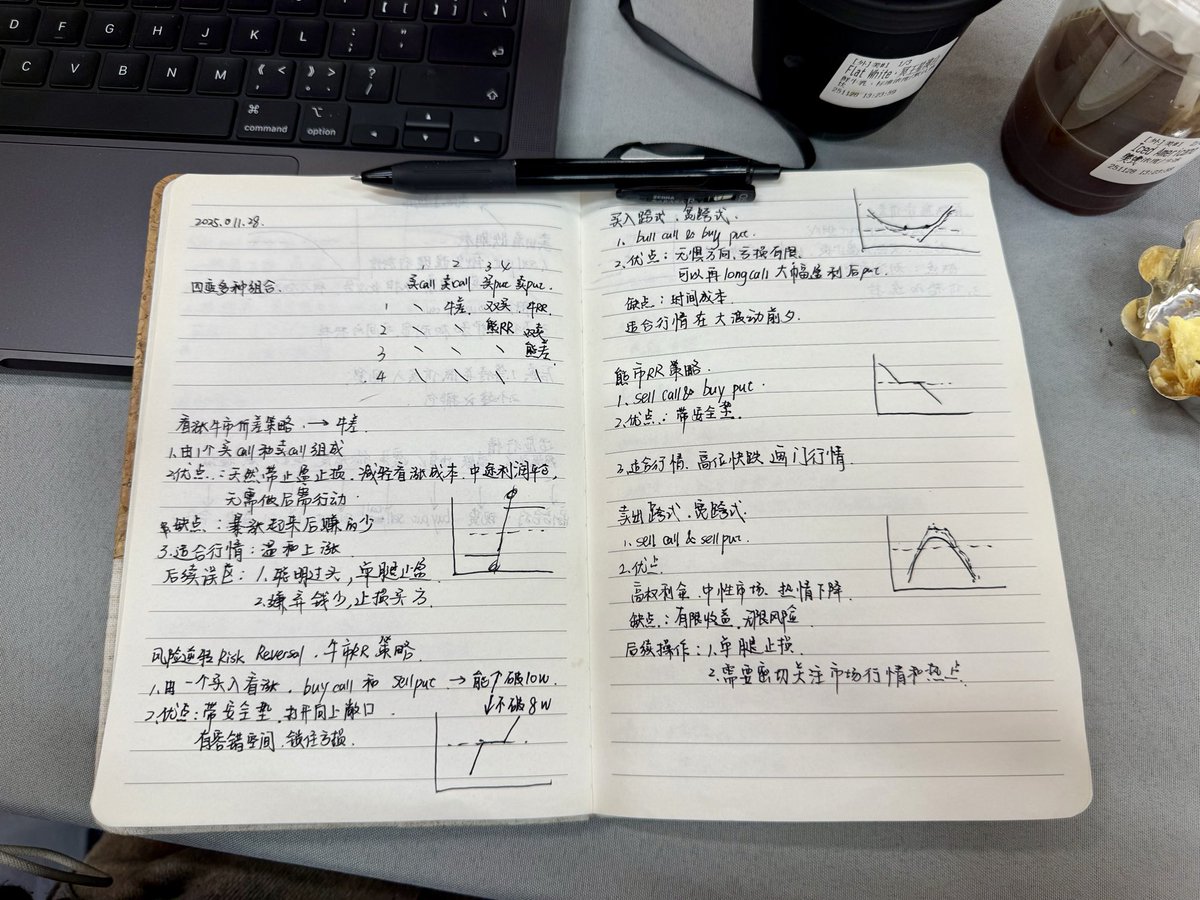 D F G H J K L : ; " '
C V B N M 《 < 》 > ? /
⌘ command
⌥ option
Flat White
251128 13:23:59
Iced American
251128 13:23:59
2025.011.28.
1 2 3 4
四要多种组合. 买call 卖call 买put. 卖put.
1 \ 牛差. 双买. 牛RR
2 \ \ 熊RR 双卖
3 \ \ \ 熊差
4 \ \ \ \
看涨牛市价差策略. → 牛差.
1.由1个买call和卖call组成
2.优点:天然带止盈止损. 减轻看涨成本. 中途利润
无需做后需行动.
缺点:暴涨起来后赚的少
3.适合行情:温和上涨.
后续误区:1.聪明过头,单腿止盈
2.嫌弃钱少,止损买方.
风险逆转Risk Reversal. 牛市RR策略.
1.由一个买入看涨. buy call 和 sell put → 能↑破10w.
↓不破8w
2.优点:带安全垫.打开向上敞口.
有容错空间.锁住亏损.
买入跨式.宽跨式.
1. bull call & buy put.
2.优点:无惧方向.亏损有限.
可以再long call.大幅盈利后put.
缺点:时间成本.
适合行情在大波动前夕.
熊市RR策略.
1. sell call & buy put.
2.优点:带安全垫.
3.适合行情.高位快跌 画门行情.
卖出跨式.宽跨式.
1. sell call & sell put.
2.优点
高权利金.中性市场.热情下降.
缺点:有限收益.无限风险.
后续操作:1.单腿止损.
2.需要密切关注市场行情和热点.